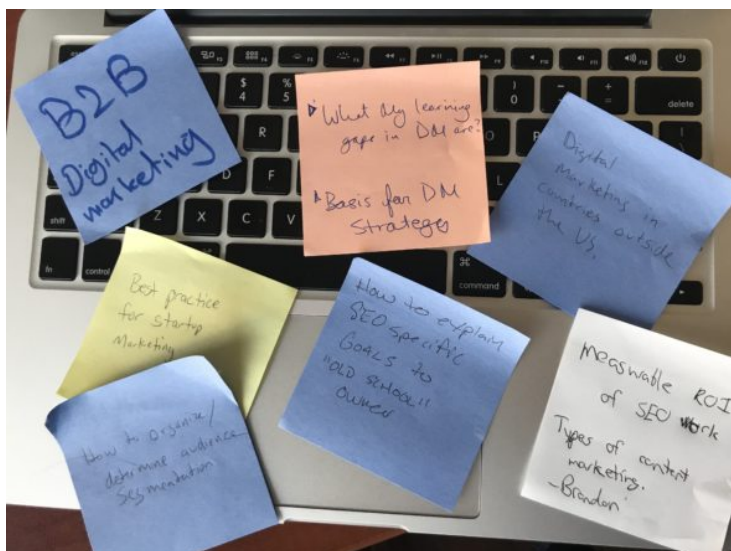 B2B
Digital
marketing
What my learning
gaps in DM are?
Basis for DM
Strateges
Digital
Marketing in
countries outside
the US.
Best practice
for startup
Marketing
How to explain
SEO specific
GOALS to
"OLD SCHOOL"
OWNER
How to organize/
determine audience
segmentation
measurable ROI
of SEO work
Types of content
marketing.
-Brandon
$
4
%
5
)
0
-
+
=
delete
R
O
P
D
F
L
shift
Z
X
C
V
fn
control
⌘
command